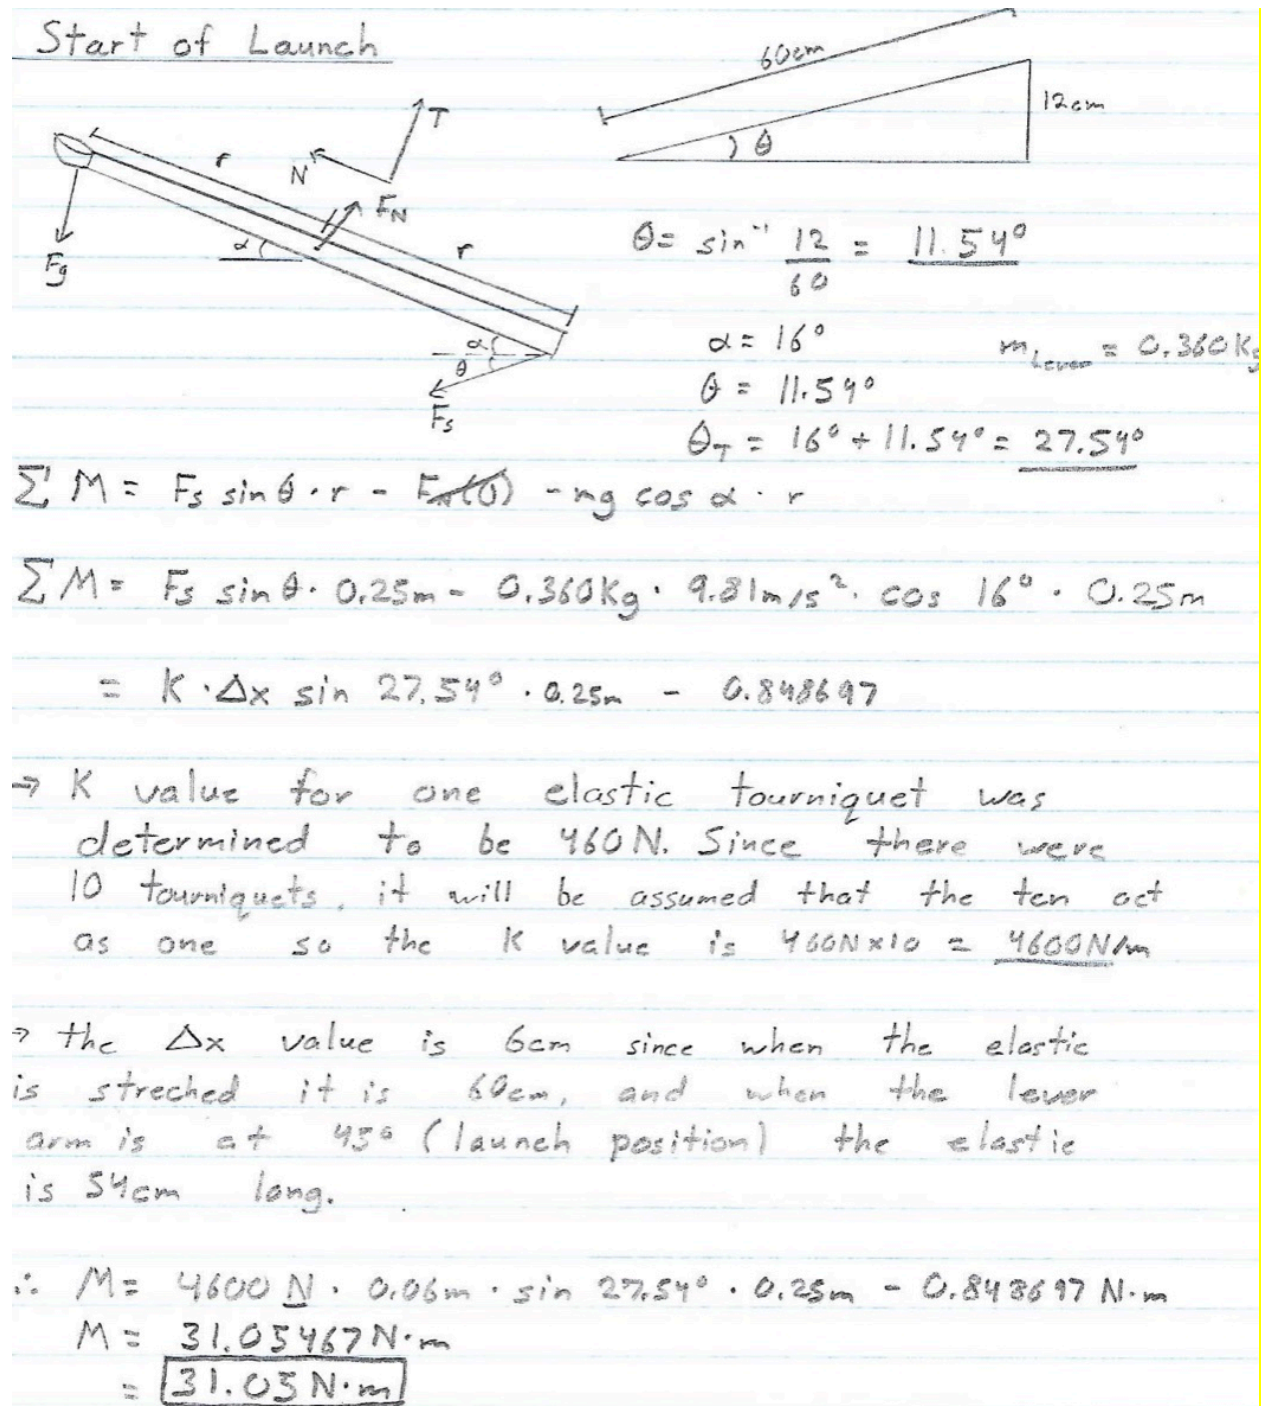 Start of Launch
60cm
12cm
θ
T
N
r
F_N
α
r
Fg
α
θ
Fs
θ = sin⁻¹ 12/60 = 11.54°
α = 16°
m_Lever = 0.360Kg
θ = 11.54°
θ_T = 16° + 11.54° = 27.54°
Σ M = Fs sin θ · r - F_N(0) - mg cos α · r
Σ M = Fs sin θ · 0.25m - 0.360Kg · 9.81m/s² · cos 16° · 0.25m
= K · Δx sin 27.54° · 0.25m - 0.848697
→ K value for one elastic tourniquet was
determined to be 460N. Since there were
10 tourniquets, it will be assumed that the ten act
as one so the K value is 460N x 10 = 4600N/m
→ the Δx value is 6cm since when the elastic
is streched it is 60cm, and when the lever
arm is at 45° (launch position) the elastic
is 54cm long.
∴ M = 4600 N · 0.06m · sin 27.54° · 0.25m - 0.848697 N·m
M = 31.05467 N·m
= 31.05 N·m